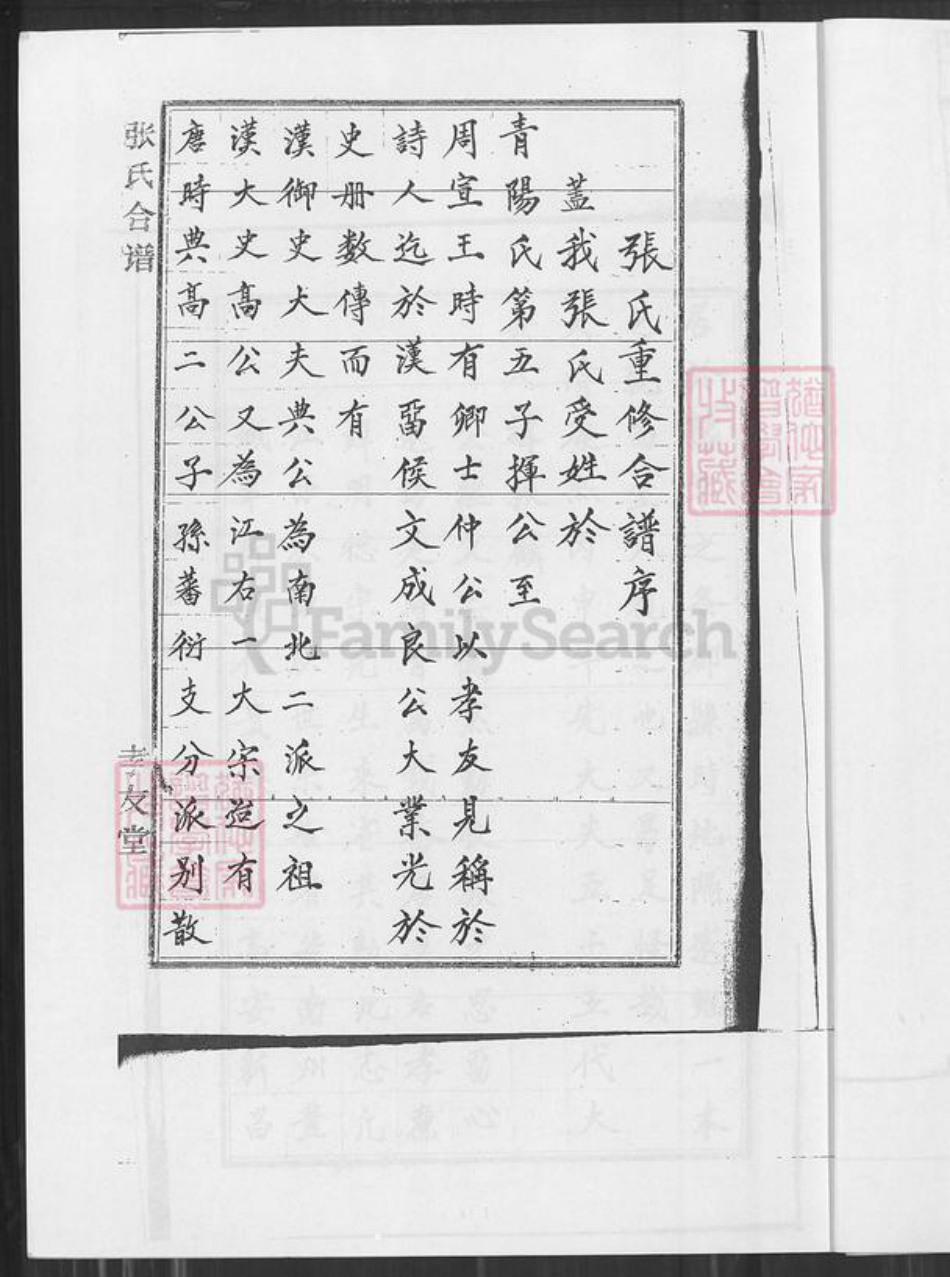 張氏重修合譜序
蓋我張氏受姓於
青陽氏第五子揮公至
周宣王時有卿士仲公以孝友見稱於
詩人迄於漢畱候文成良公大業光於
史册数傳而有
漢御史大夫典公為南北二派之祖
漢大史高公又為江右一大宗迨有
唐時典高二公子孫蕃衍支分派别散
张氏合谱
孝友堂
FamilySearch